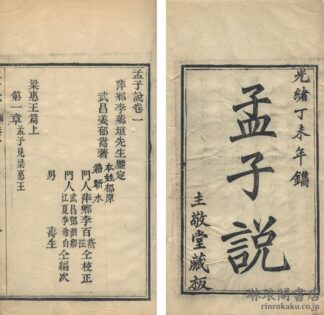 光緒丁未年鐫
孟子說
主敬堂藏板
孟子說卷一
萍鄉李藕垣先生鑒定
武昌姜郁嵩著
本姓邹原
籍新木
門人萍鄉李百
仝校正
門人
江夏李
仝編次
男
壽生
梁惠王篇上
第一章 孟子見梁惠王
琳琅閣書店
rinrokaku.co.jp